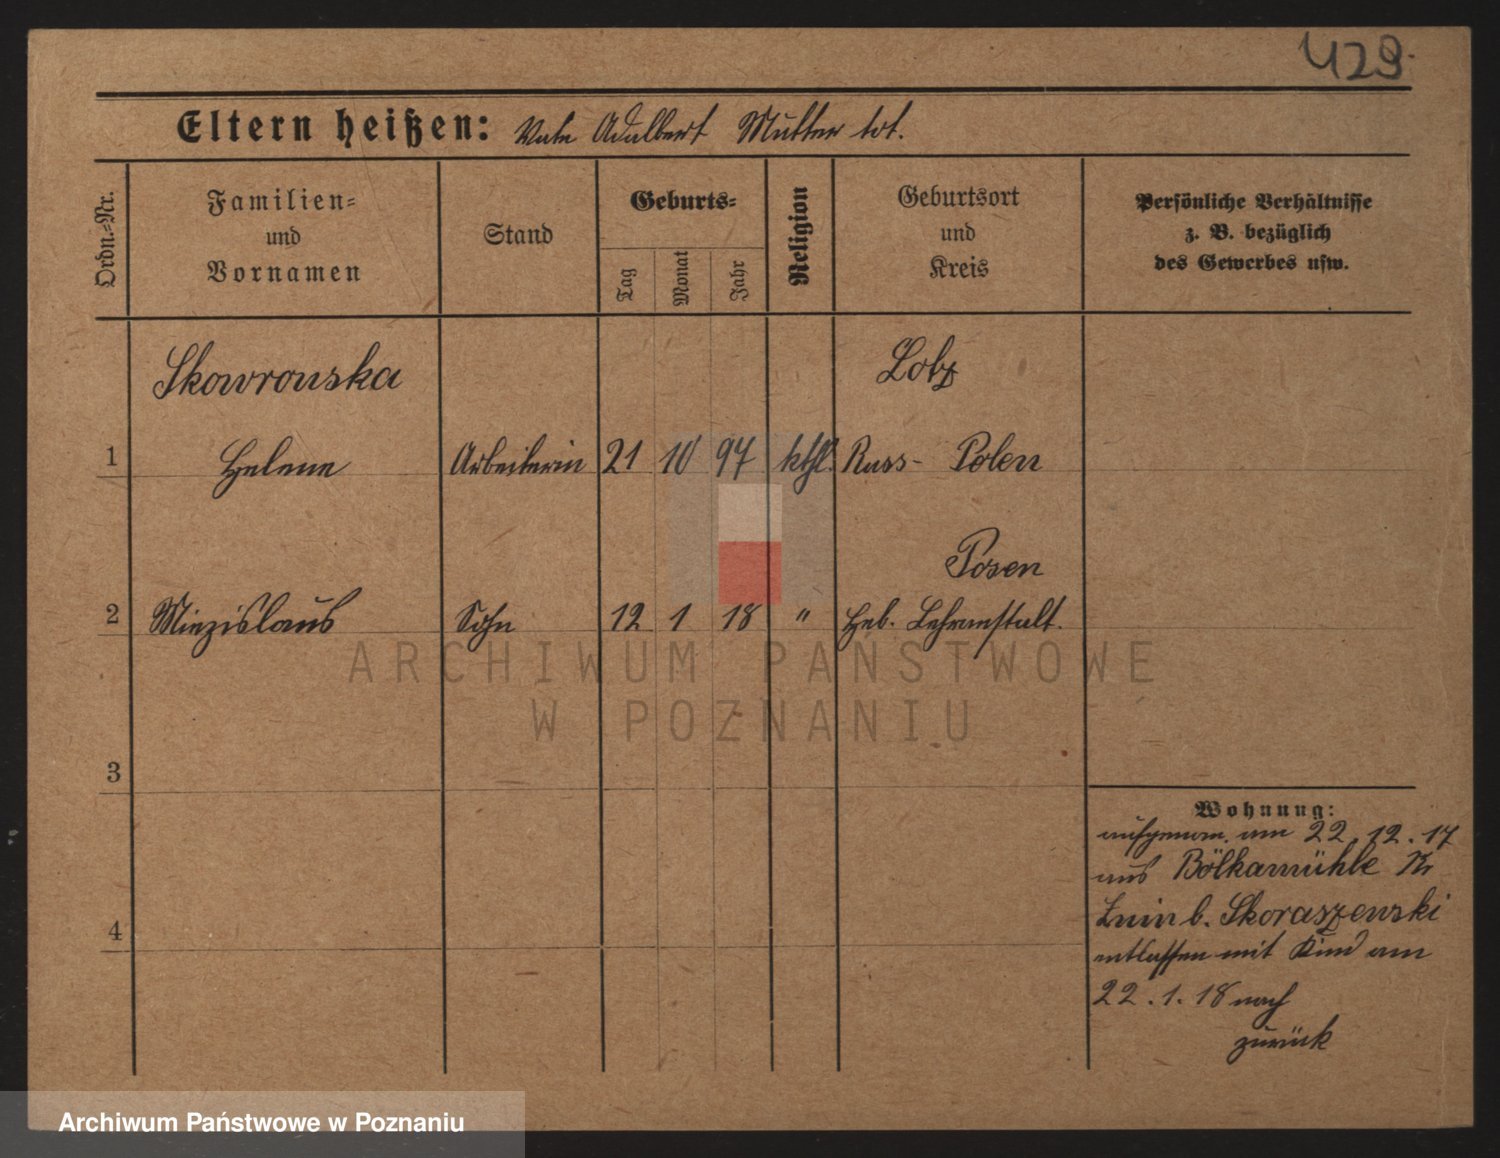 429.
Eltern heißen: Vate Adalbert Mutter tot.
Ordn.=Nr.
Familien=
und
Vornamen
Stand
Geburts=
Tag
Monat
Jahr
Religion
Geburtsort
und
Kreis
Persönliche Verhältnisse
z. B. bezüglich
des Gewerbes usw.
Skowronska
1 Helene Arbeiterin 21 10 97 kthl. Russ- Polen
Posen
2 Miezislaus Sohn 12 1 18 " Heb. Lehranstalt.
ARCHIWUM PAŃSTWOWE
W POZNANIU
3
4
Wohnung:
aufgenom. am 22.12.17
aus Bölkamühle Kr
Znin b. Skoraszewski
entlassen mit Kind am
22.1.18 nach
zurück
Archiwum Państwowe w Poznaniu